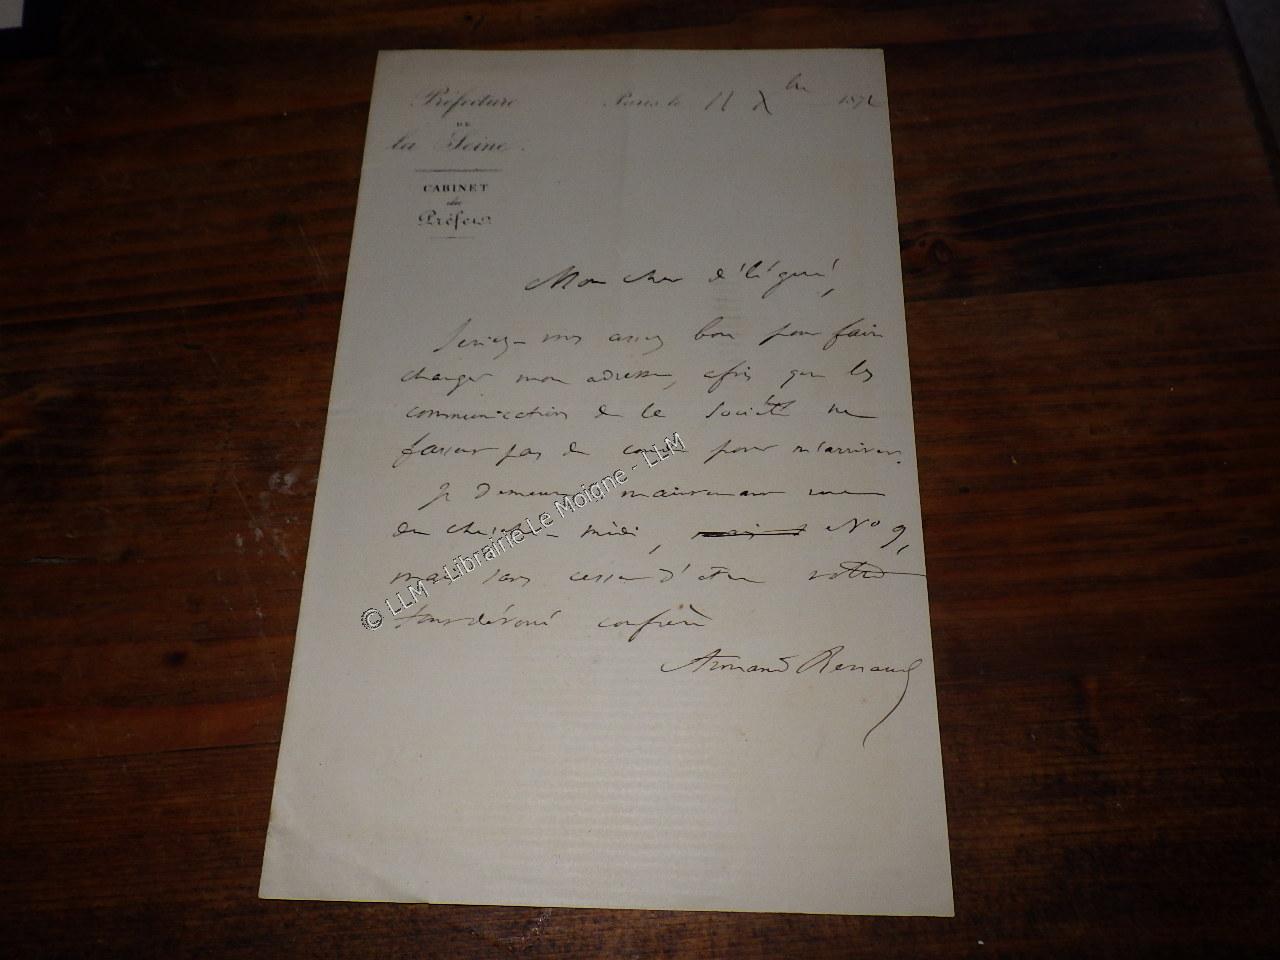 Préfecture
DE
la Seine.
CABINET
du
Préfet
Paris, le 11 Xbre 187
Mon cher délégué,
Seriez-vous assez bon pour faire
changer mon adresse, afin que les
communications de la Société ne
fassent pas de courses pour m'arriver.
Je demeure maintenant rue
du cherche-midi, N° 9,
mais sans cesser d'être votre
tout dévoué confrère
Armand Renaud
© LLM - Librairie Le Moigne - LLM